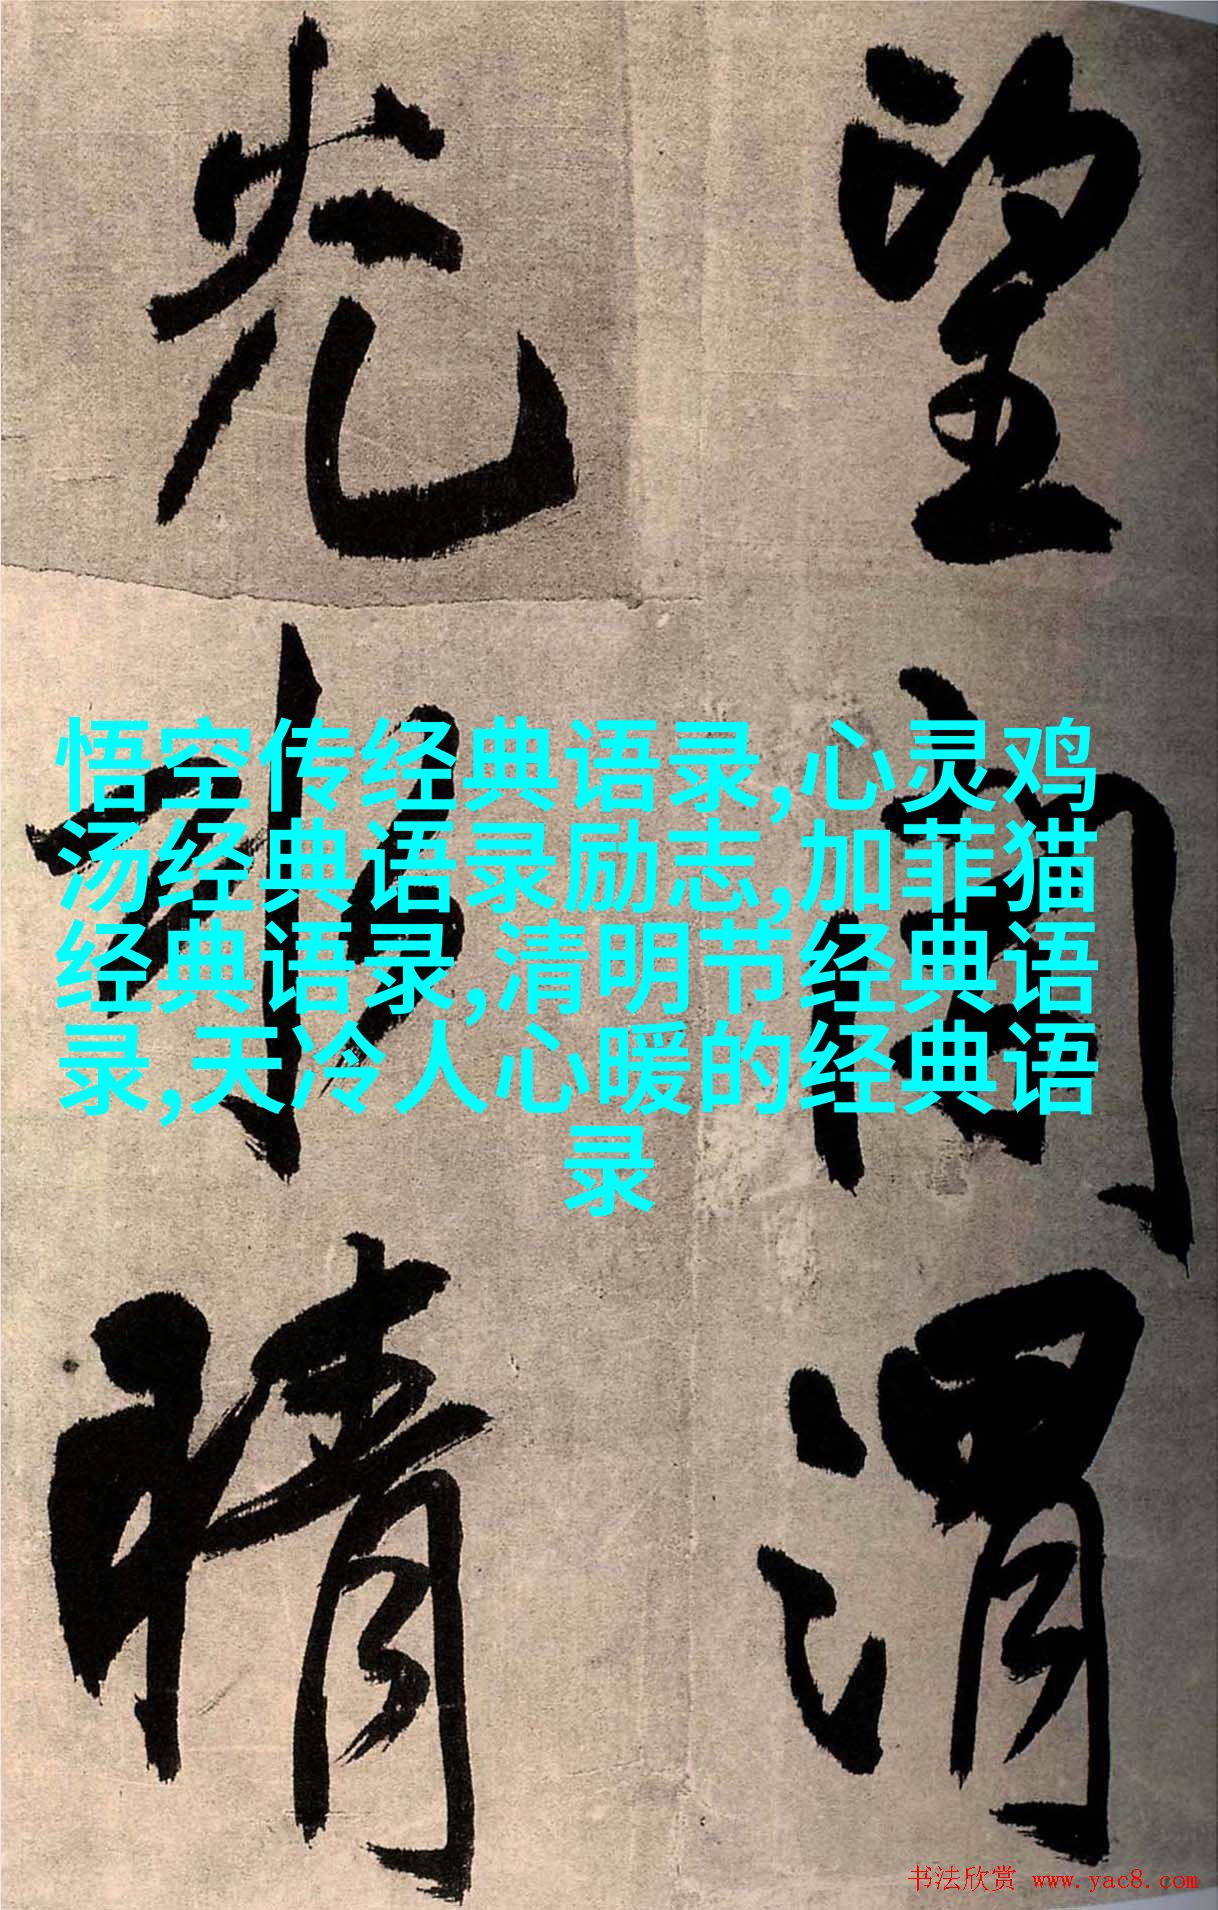 望
渭
光
晴
悟空传经典语录,心灵鸡
汤经典语录励志,加菲猫
经典语录,清明节经典语
录,天冷人心暖的经典语
录
书法欣赏 www.yac8.com